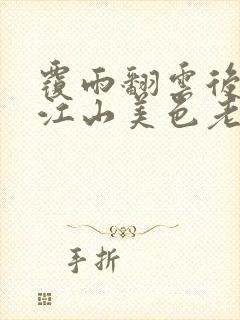 覆雨翻雲後
江山美色老
手折